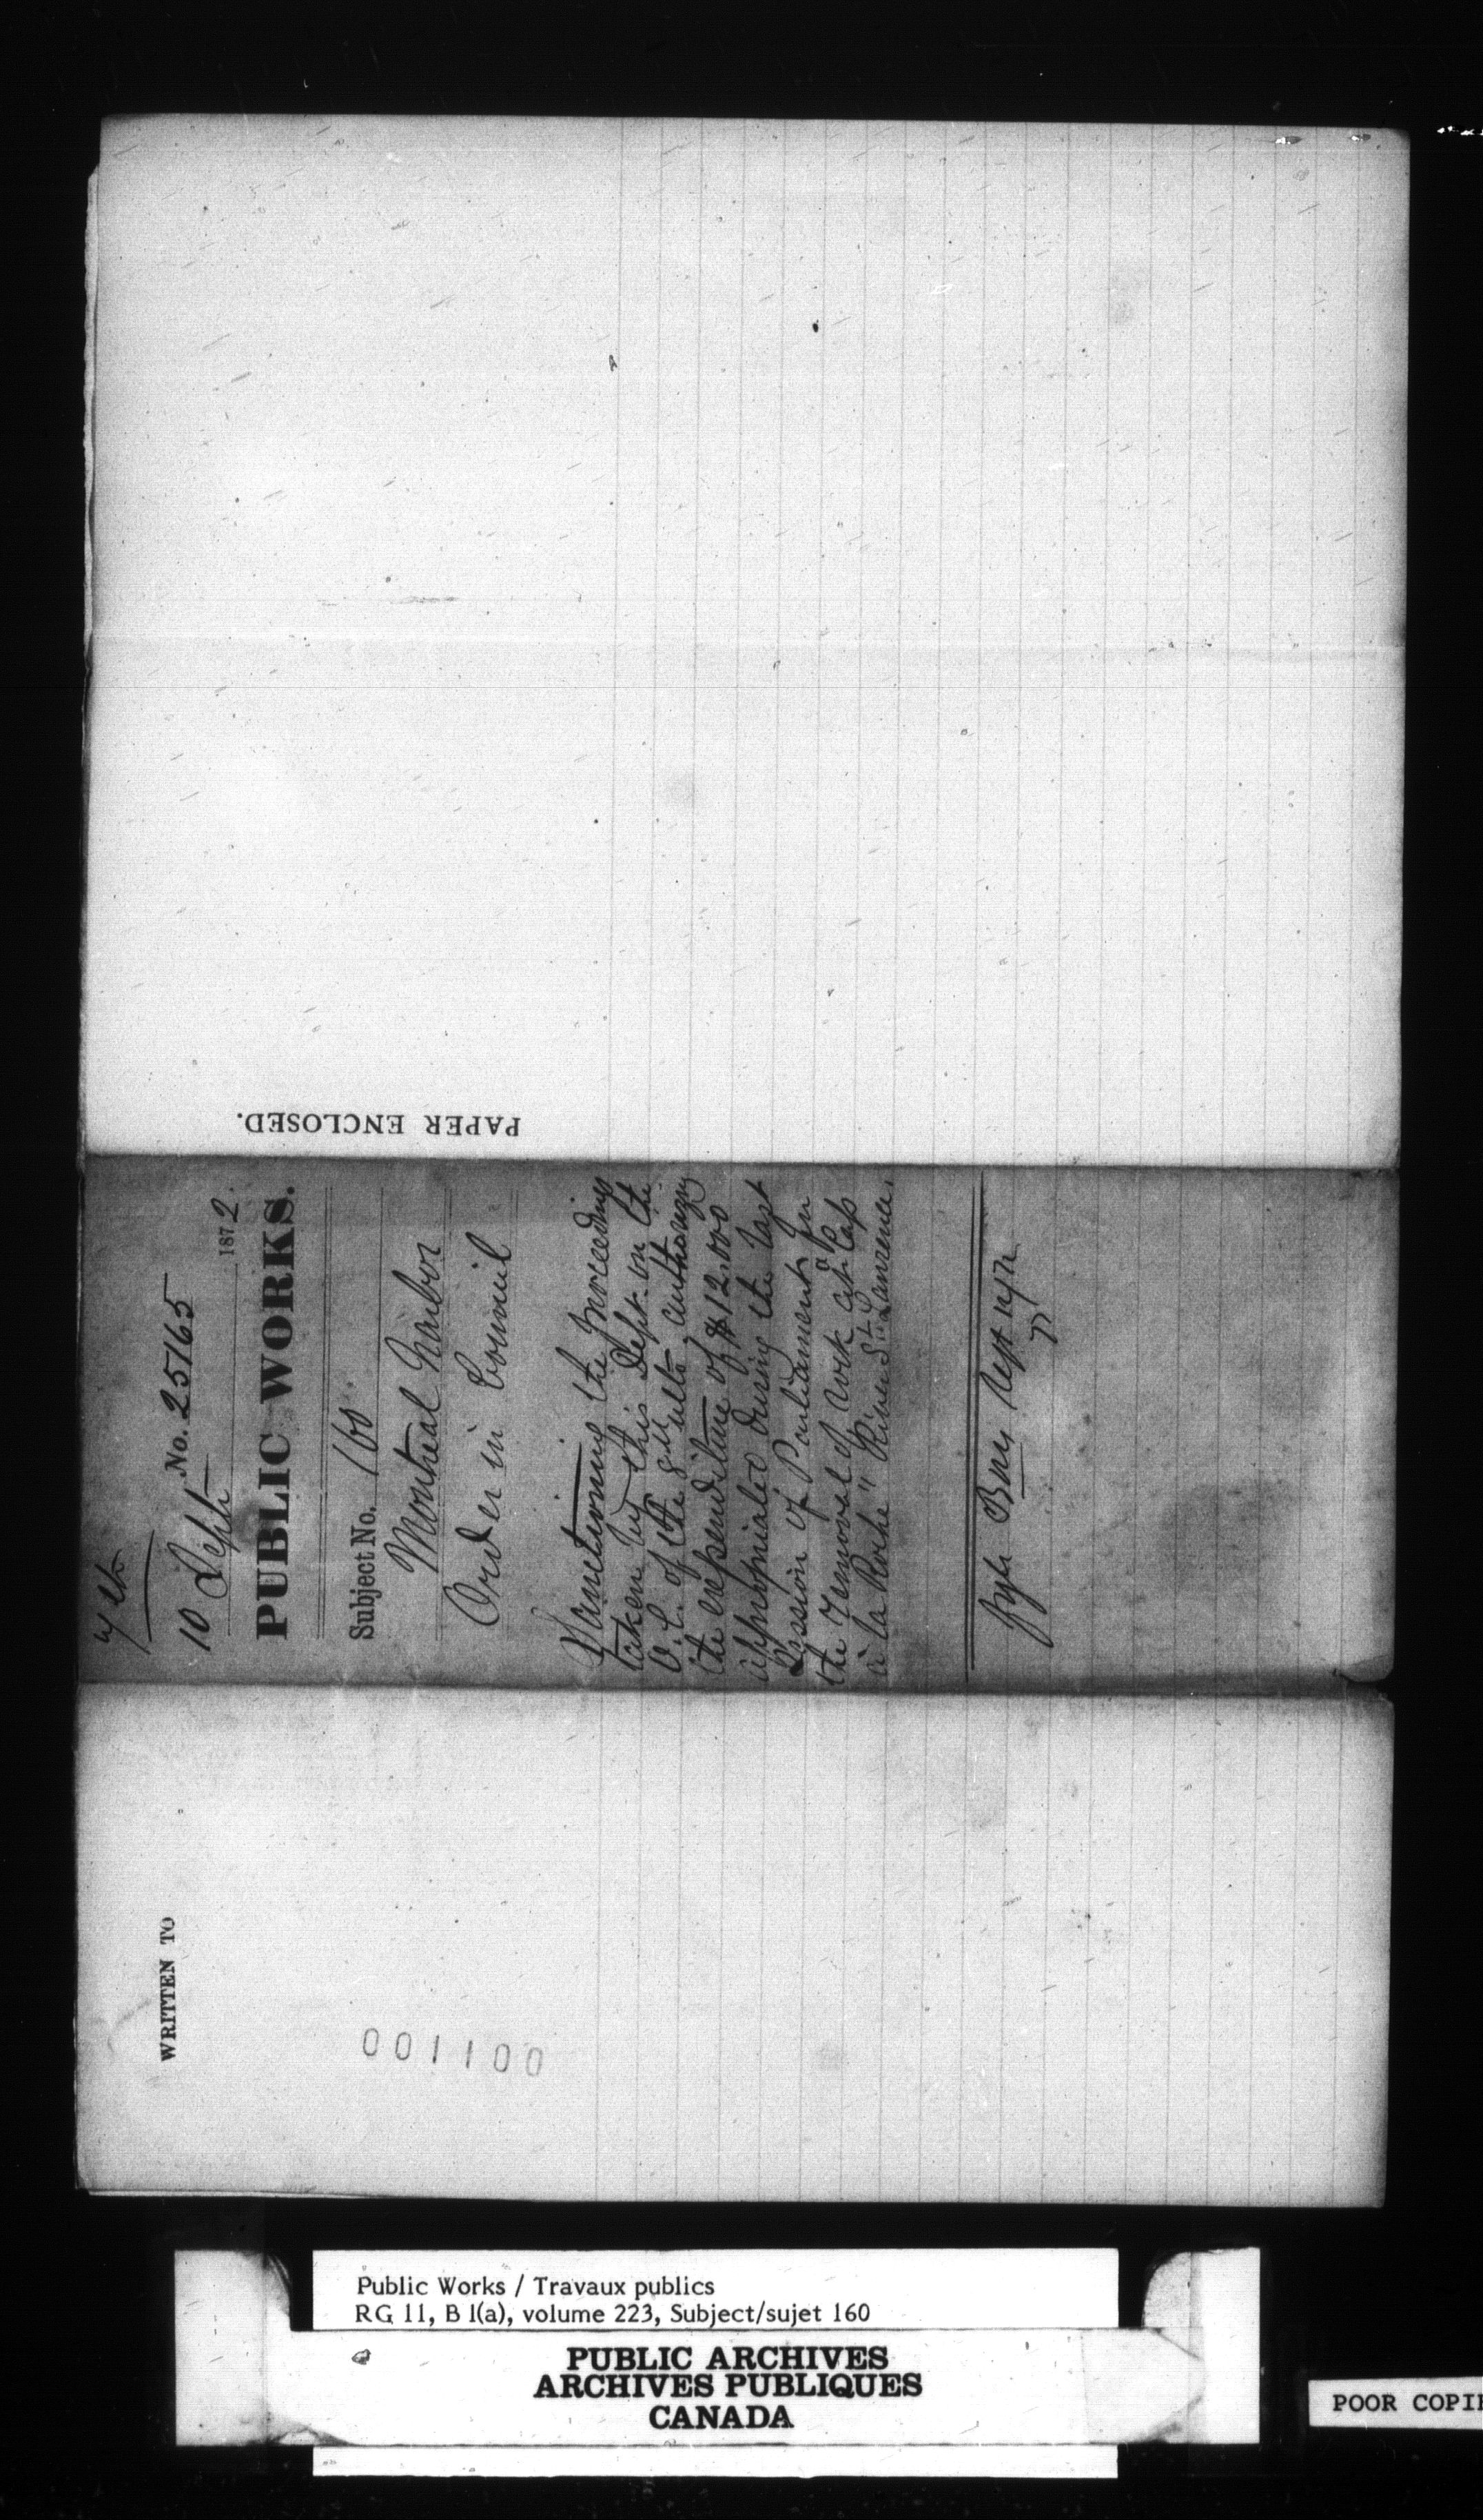 PAPER ENCLOSED.
No. 25165
10 Sept 1872.
PUBLIC WORKS.
Subject No. 160
Montreal Harbor
Order in Council
Sanctioning the proceedings
taken by this Dept. on the
O.C. of the 8th ulto, authorizing
the expenditure of $12.000
appropriated during the last
Session of Parliament for
the removal of rock at "Cap
à la Roche" River St. Lawrence.
Sept 14/72
WRITTEN TO
001100
Public Works / Travaux publics
RG 11, B 1(a), volume 223, Subject/sujet 160
PUBLIC ARCHIVES
ARCHIVES PUBLIQUES
CANADA
POOR COPIE